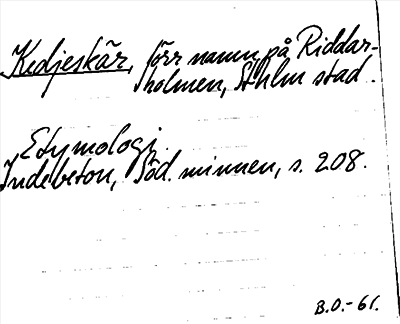 Kedjeskär, förr namn på Riddar-
holmen, Sthlm stad.
Etymologi.
Indebetou, Söd. minnen, s. 208.
B.O.-61.